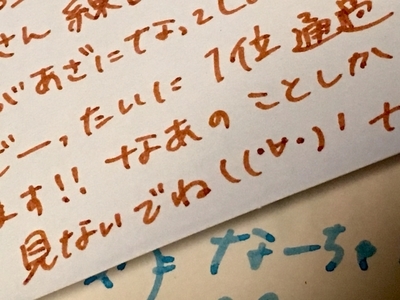 さん 練
があざになって
ど一ったいに 1位 通過
ます!! なあの ことしか
見ないでね((・∀・)!
なーちゃ